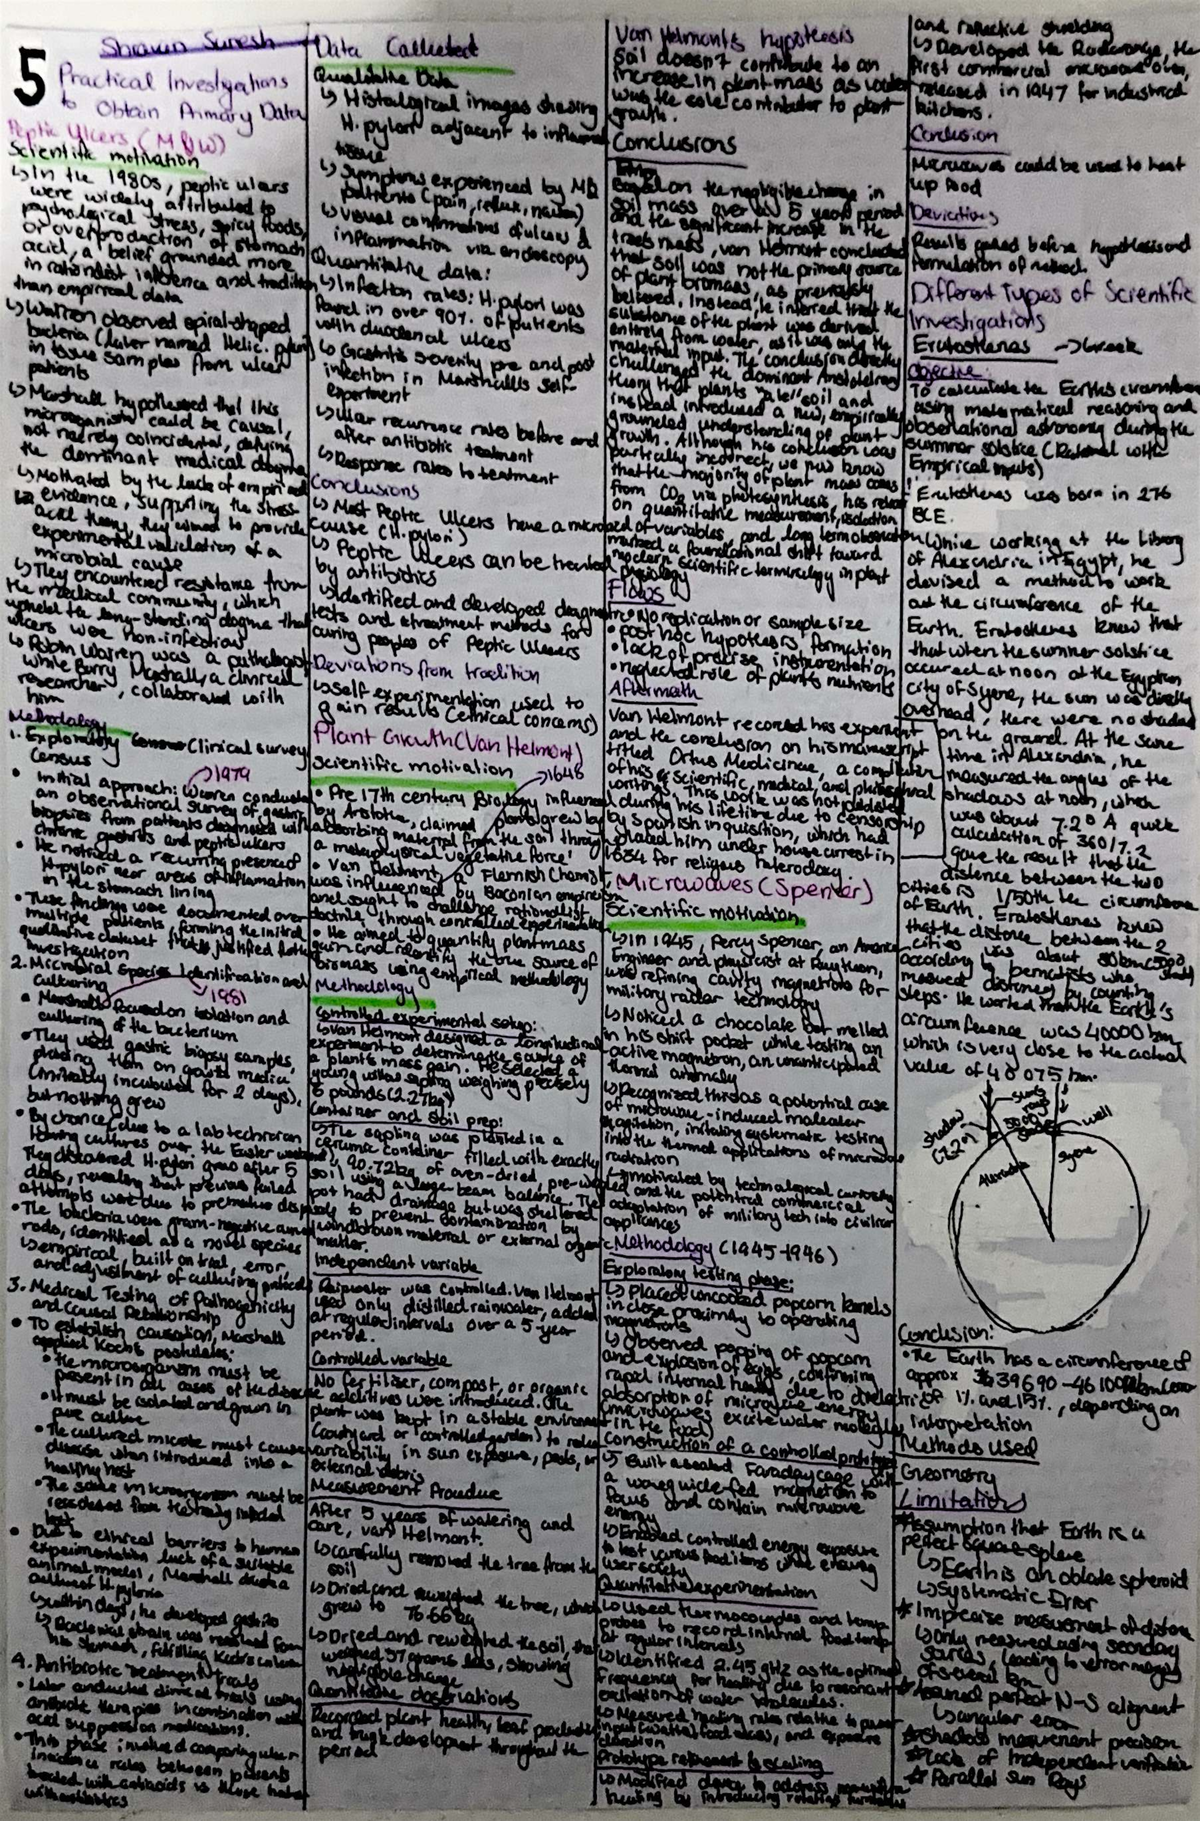 5
Shravan Suresh
Practical Investigations
to Obtain Primary Data
Peptic Ulcers (M&W)
Scientific motivation
↳ In the 1980s, peptic ulcers
were widely attributed to
psychological stress, spicy foods,
or overproduction of stomach
acid, a belief grounded more
in rationalist inference and tradition
than empirical data
↳ Warren observed spiral-shaped
bacteria (later named Helic. pylori)
in tissue samples from ulcer
patients
↳ Marshall hypothesised that this
microorganism could be causal,
not merely coincidental, defying
the dominant medical dogma
↳ Motivated by the lack of empirical
evidence, supporting the stress-
acid theory, they aimed to provide
experimental validation of a
microbial cause
↳ They encountered resistance from
the medical community, which
upheld the long-standing dogma that
ulcers were non-infectious
↳ Robin Warren was a pathologist
while Barry Marshall, a clinical
researcher, collaborated with
him
Methodology
1. Exploratory Clinical survey
Census →1979
• Initial approach: Warren conducted
an observational survey of gastric
biopsies from patients diagnosed with
chronic gastritis and peptic ulcers
• He noticed a recurring presence of
H.pylori near areas of inflammation
in the stomach lining
• These findings were documented over
multiple patients, forming the initial
qualitative dataset that justified further
investigation
2. Microbial Species Identification and
culturing →1981
• Marshall focused on isolation and
culturing of the bacterium
• They used gastric biopsy samples,
placing them on media
(initially incubated for 2 days),
but nothing grew
• By chance (due to a lab technician
leaving cultures over the Easter weekend),
they discovered H.pylori grew after 5
days, revealing that previous failed
attempts were due to premature disposal
• The bacteria were gram-negative curved
rods, identified as a novel species
↳ empirical, built on trial, error,
and adjustment of culturing protocols
3. Medical Testing of Pathogenicity
and Causal Relationship
• To establish causation, Marshall
applied Koch's postulates:
• The microorganism must be
present in all cases of the disease
• It must be isolated and grown in
pure culture
• The cultured microbe must cause
disease when introduced into a
healthy host
• The same microorganism must be
reisolated from the newly infected
host
• Due to ethical barriers to human
experimentation, lack of a suitable
animal model, Marshall drank a
culture of H.pylori
↳ within days, he developed gastritis
↳ Bacterial strain was reisolated from
his stomach, fulfilling Koch's criteria
4. Antibiotic Treatment Trials
• Later conducted clinical trials using
antibiotic therapies in combination with
acid suppression medications.
• This phase involved comparing ulcer
incidence rates between patients
treated with antacids vs those treated
with antibiotics
Data Collected
Qualitative Data
↳ Histological images showing
H.pylori adjacent to inflamed
tissue
↳ Symptoms experienced by M&
patients (pain, reflux, nausea)
↳ Visual confirmations of ulcers &
inflammation via endoscopy
Quantitative data:
↳ Infection rates: H.pylori was
found in over 90% of patients
with duodenal ulcers
↳ Gastritis severity pre and post
infection in Marshall's self-
experiment
↳ Ulcer recurrence rates before and
after antibiotic treatment
↳ Response rates to treatment
Conclusions
↳ Most Peptic Ulcers have a microbial
cause (H.pylori)
↳ Peptic Ulcers can be treated
by antibiotics
↳ Identified and developed diagnostic
tests and treatment methods for
curing peoples of Peptic Ulcers
Deviations from tradition
↳ Self experimentation used to
gain results (ethical concerns)
Plant Growth (Van Helmont)
Scientific motivation →1648
• Pre 17th century Biology influenced
by Aristotle, claimed plants grew by
absorbing material from the soil through
a metaphysical 'vegetative force'
• Van Helmont, a Flemish Chemist,
was influenced by Baconian empiricism
and sought to challenge rationalist
doctrine through controlled experimentation
• He aimed to quantify plant mass
gain and identify the true source of
biomass using empirical methodology
Methodology
Controlled experimental setup:
↳ Van Helmont designed a longitudinal
experiment to determine the source of
a plant's mass gain. He selected a
young willow sapling weighing precisely
5 pounds (2.27kg)
Container and Soil prep:
↳ The sapling was planted in a
ceramic container filled with exactly
90.72kg of oven-dried, pre-weighed
soil using a large beam balance. The
pot had drainage but was sheltered
to prevent contamination by
windblown material or external organic
matter.
Independent variable
Rainwater was controlled. Van Helmont
used only distilled rainwater, added
at regular intervals over a 5-year
period.
Controlled variable
No fertiliser, compost, or organic
additives were introduced. The
plant was kept in a stable environment
(courtyard or controlled garden) to reduce
variability in sun exposure, pests, or
external debris
Measurement Procedure
After 5 years of watering and
care, van Helmont:
↳ carefully removed the tree from the
soil
↳ Dried and reweighed the tree, which
grew to 76.66kg
↳ Dried and reweighed the soil, that
weighed 57 grams less, showing
negligible change
Quantitative observations
Recorded plant health, leaf production
and trunk development throughout the
period
Van Helmont's hypothesis
soil doesn't contribute to an
increase in plant mass as water
was the sole contributor to plant
growth.
Conclusions
Based on the negligible change in
soil mass over a 5 year period
and the significant increase in the
tree's mass, van Helmont concluded
that soil was not the primary source
of plant biomass, as previously
believed. Instead, he inferred that the
substance of the plant was derived
entirely from water, as it was only the
material input. The conclusion directly
challenged the dominant Aristotelian
theory that plants "ate" soil and
instead introduced a new, empirically
grounded understanding of plant
growth. Although his conclusion was
partially incorrect, we now know
that the majority of plant mass comes
from CO2 via photosynthesis, his reliance
on quantitative measurement, isolation
of variables, and long term observation
marked a foundational shift toward
modern scientific terminology in plant
physiology
Flaws
• No replication or sample size
• post hoc hypothesis formation
• lack of precise instrumentation
• neglected role of plants nutrients
Aftermath
Van Helmont recorded his experiment
and the conclusion on his manuscript
titled Ortus Medicinae, a compilation
of his scientific, medical, and philosophical
writings. This work was not published
during his lifetime due to censorship
by Spanish inquisition, which had
placed him under house arrest in
1634 for religious heterodoxy.
Microwaves (Spencer)
Scientific motivation
↳ In 1945, Percy Spencer, an American
Engineer and physicist at Raytheon,
was refining cavity magnetrons for
military radar technology
↳ Noticed a chocolate bar melted
in his shirt pocket while testing an
active magnetron, an unanticipated
thermal anomaly
↳ Recognized this as a potential case
of microwave-induced molecular
agitation, initiating systematic testing
into the thermal applications of microwave
radiation
↳ motivated by technological curiosity
and the potential commercial
adaptation of military tech into civilian
appliances
Methodology (1945-1946)
Exploratory testing phase:
↳ Placed uncooked popcorn kernels
in close proximity to operating
magnetrons
↳ Observed popping of popcorn
and explosion of eggs, confirming
rapid internal heating due to dielectric
absorption of microwave energy
(microwaves excite water molecules
in the food)
Construction of a controlled prototype
↳ Built a sealed Faraday cage with
a waveguide-fed magnetron to
focus and contain microwave
energy
↳ Enabled controlled energy exposure
to test various food items while ensuring
user safety
Quantitative experimentation
↳ Used thermocouples and temp
probes to record internal food temp
at regular intervals
↳ Identified 2.45 gHz as the optimal
frequency for heating due to resonant
excitation of water molecules.
↳ Measured heating rates relative to power
input (watts), food mass, and exposure
duration
Prototype refinement & scaling
↳ Modified device to address non-uniform
heating by introducing rotating turntables
and reflective shielding
↳ Developed the Radarange, the
first commercial microwave oven,
released in 1947 for industrial
kitchens.
Conclusion
Microwaves could be used to heat
up food
Deviations
Results gained before hypothesis and
formulation of method.
Different Types of Scientific
Investigations
Eratosthenes →Greek
Objective:
To calculate the Earth's circumference
using mathematical reasoning and
observational astronomy during the
summer solstice (Rational with
Empirical inputs)
Eratosthenes was born in 276
BCE.
While working at the Library
of Alexandria in Egypt, he
devised a method to work
out the circumference of the
Earth. Eratosthenes knew that
that when the summer solstice
occured at noon at the Egyptian
city of Syene, the sun was directly
overhead, there were no shadows
on the ground. At the same
time in Alexandria, he
measured the angles of the
shadows at noon, which
was about 7.2° A quick
calculation of 360/7.2
gave the result that the
distance between the two
cities is 1/50th the circumference
of Earth. Eratosthenes knew
that the distance between the 2
cities was about 800km (5000 stadia)
according to bematists who
measured distances by counting
steps. He worked that the Earth's
circumference was 40000 km,
which is very close to the actual
value of 40075 km.
Sun's
rays
shadow
(7.2°)
well
Alexandria
Syene
Conclusion:
• The Earth has a circumference of
approx 39690 - 46100km (error
of 1% and 15%, depending on
interpretation
Methods Used
Geometry
Limitations
* Assumption that Earth is a
perfect sphere
↳ Earth is an oblate spheroid
↳ Systematic Error
* Imprecise measurement of distance
↳ Only measured using secondary
sources, leading to error margin
of several km
* Assumed perfect N-S alignment
↳ angular error
* Shadow measurement precision
* Lack of Independent verification
* Parallel Sun Rays